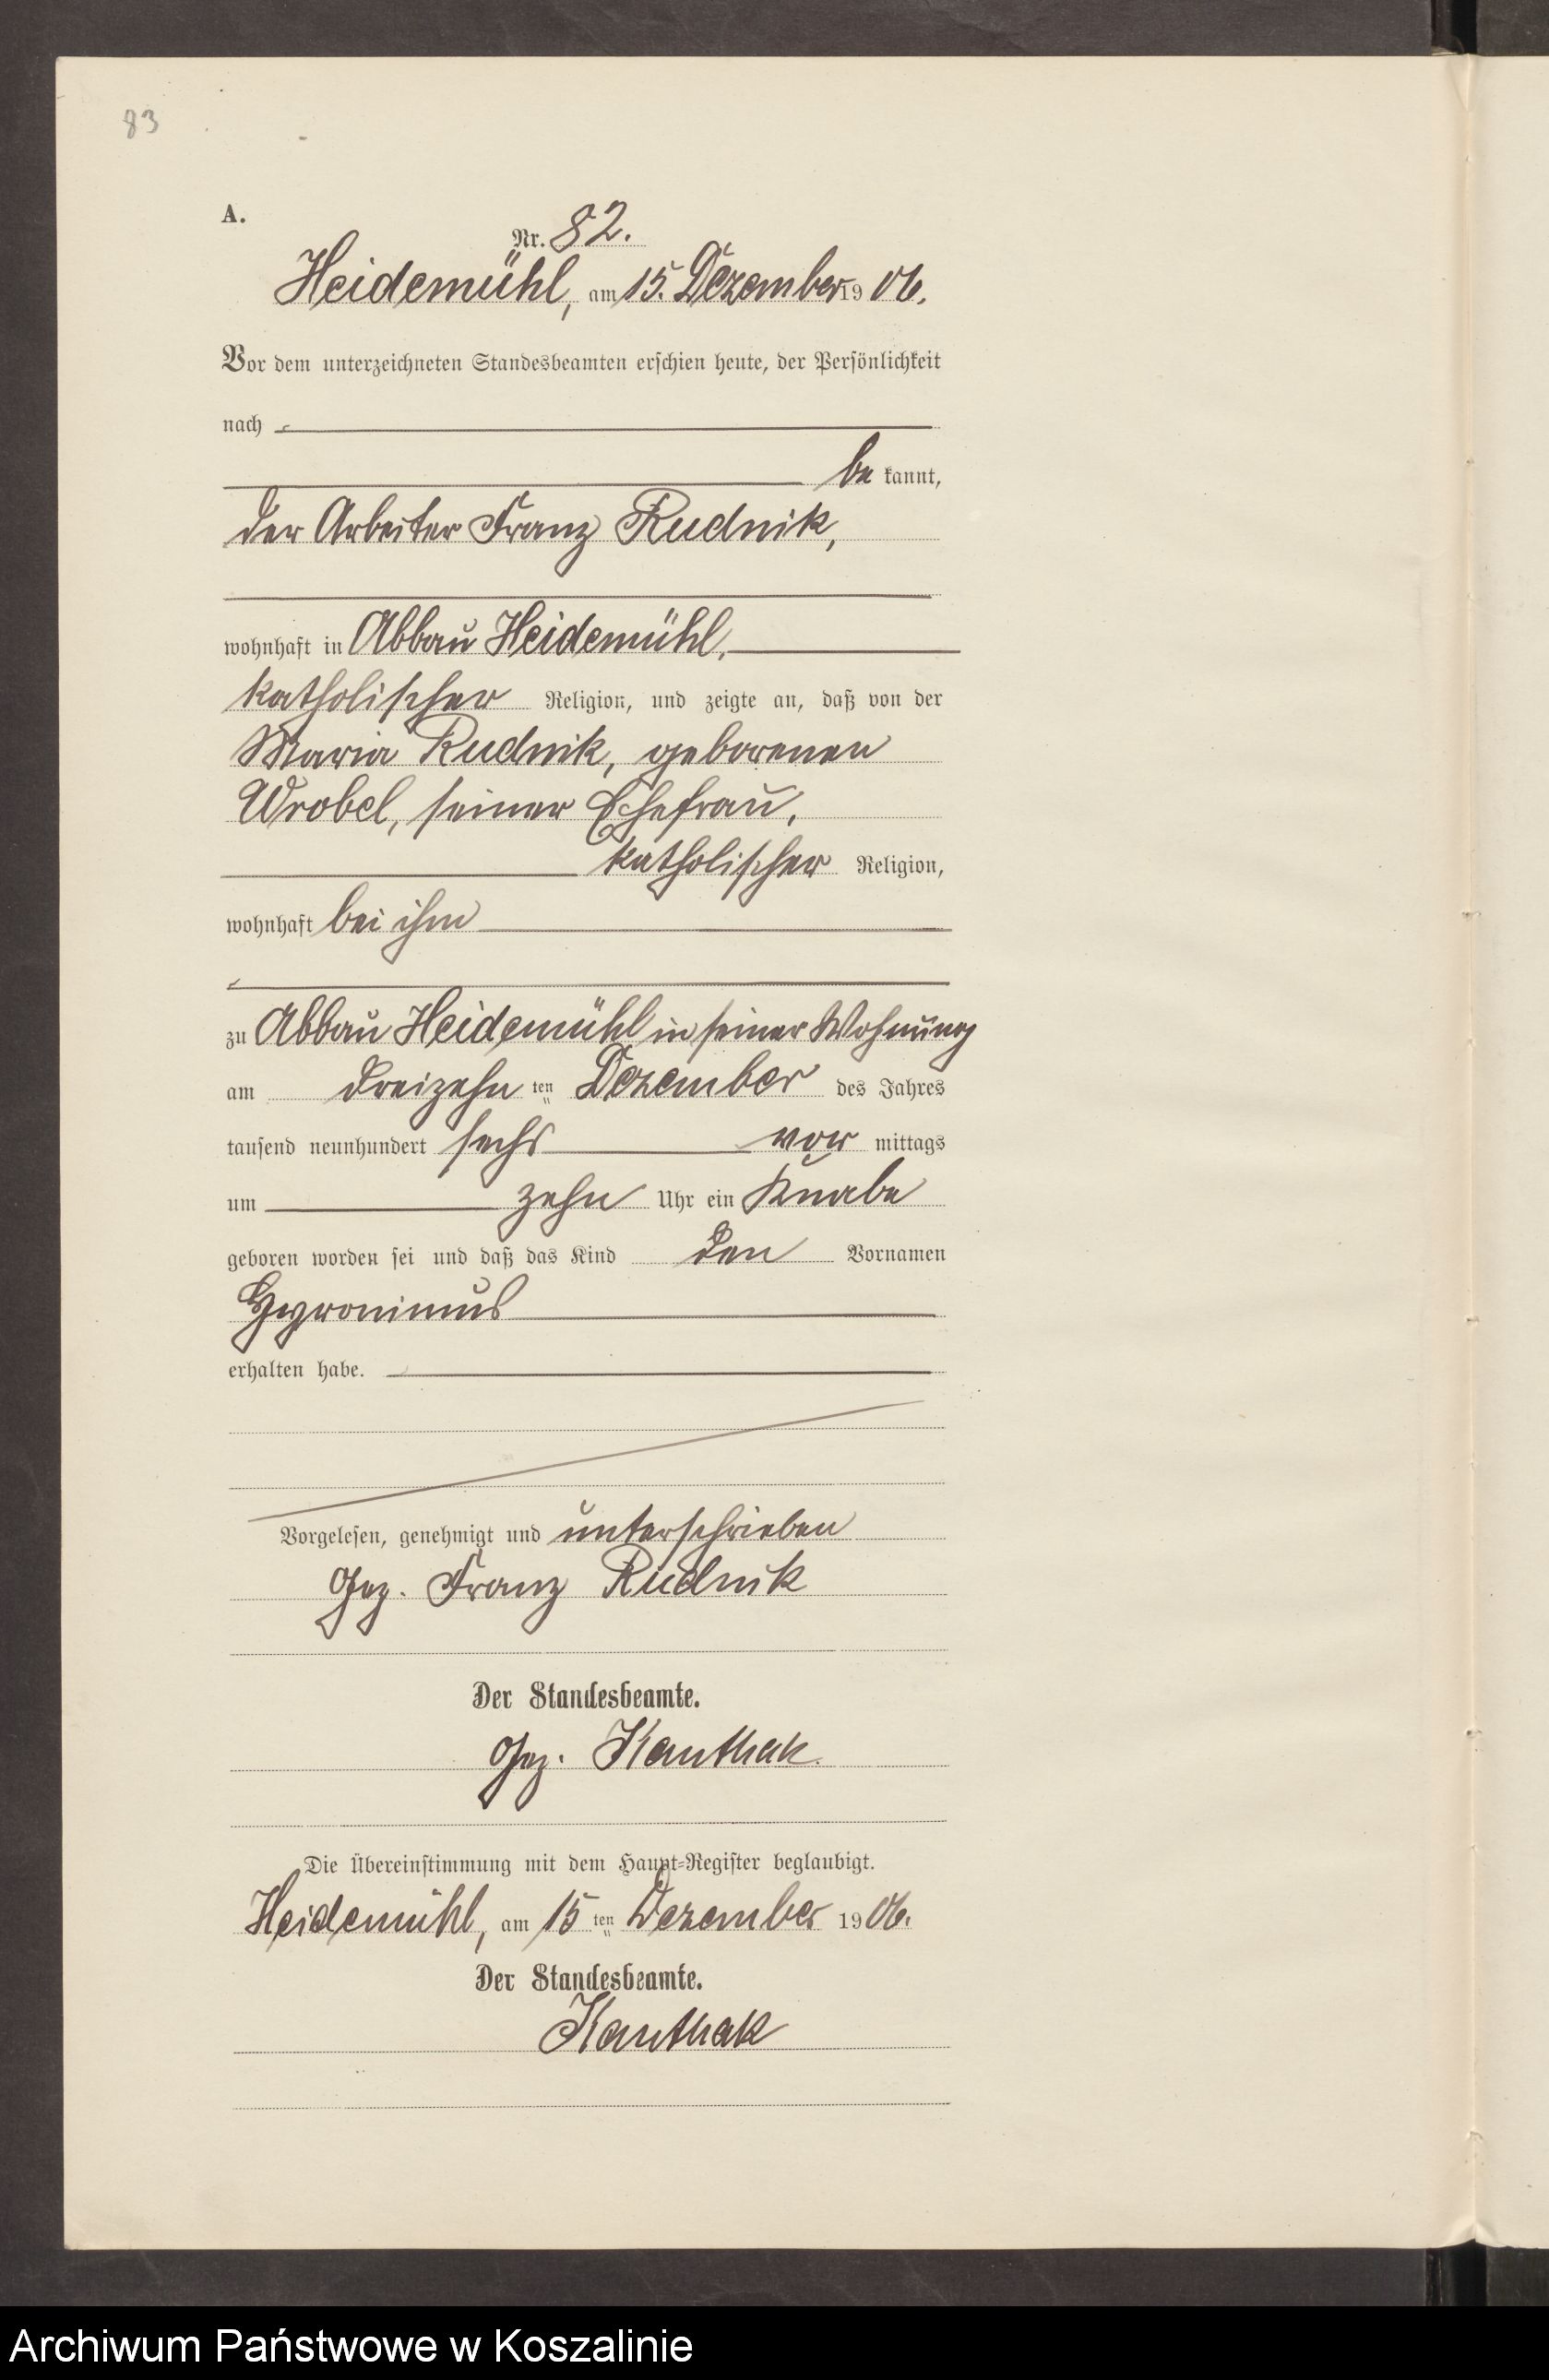 83
A.
Nr. 82.
Heidemühl, am 15. Dezember 1906.
Vor dem unterzeichneten Standesbeamten erschien heute, der Persönlichkeit
nach
be kannt,
der Arbeiter Franz Rudnik,
wohnhaft in Abbau Heidemühl,
katholischer Religion, und zeigte an, daß von der
Maria Rudnik, geborenen
Wrobel, seiner Ehefrau,
katholischer Religion,
wohnhaft bei ihm
zu Abbau Heidemühl in seiner Wohnung
am dreizehn ten Dezember des Jahres
tausend neunhundert sechs vor mittags
um zehn Uhr ein Knabe
geboren worden sei und daß das Kind den Vornamen
Hyronimus
erhalten habe.
Vorgelesen, genehmigt und unterschrieben
Gez. Franz Rudnik
Der Standesbeamte.
Gez. Kanthak.
Die Übereinstimmung mit dem Haupt=Register beglaubigt.
Heidemühl, am 15 ten Dezember 1906.
Der Standesbeamte.
Kanthak
Archiwum Państwowe w Koszalinie